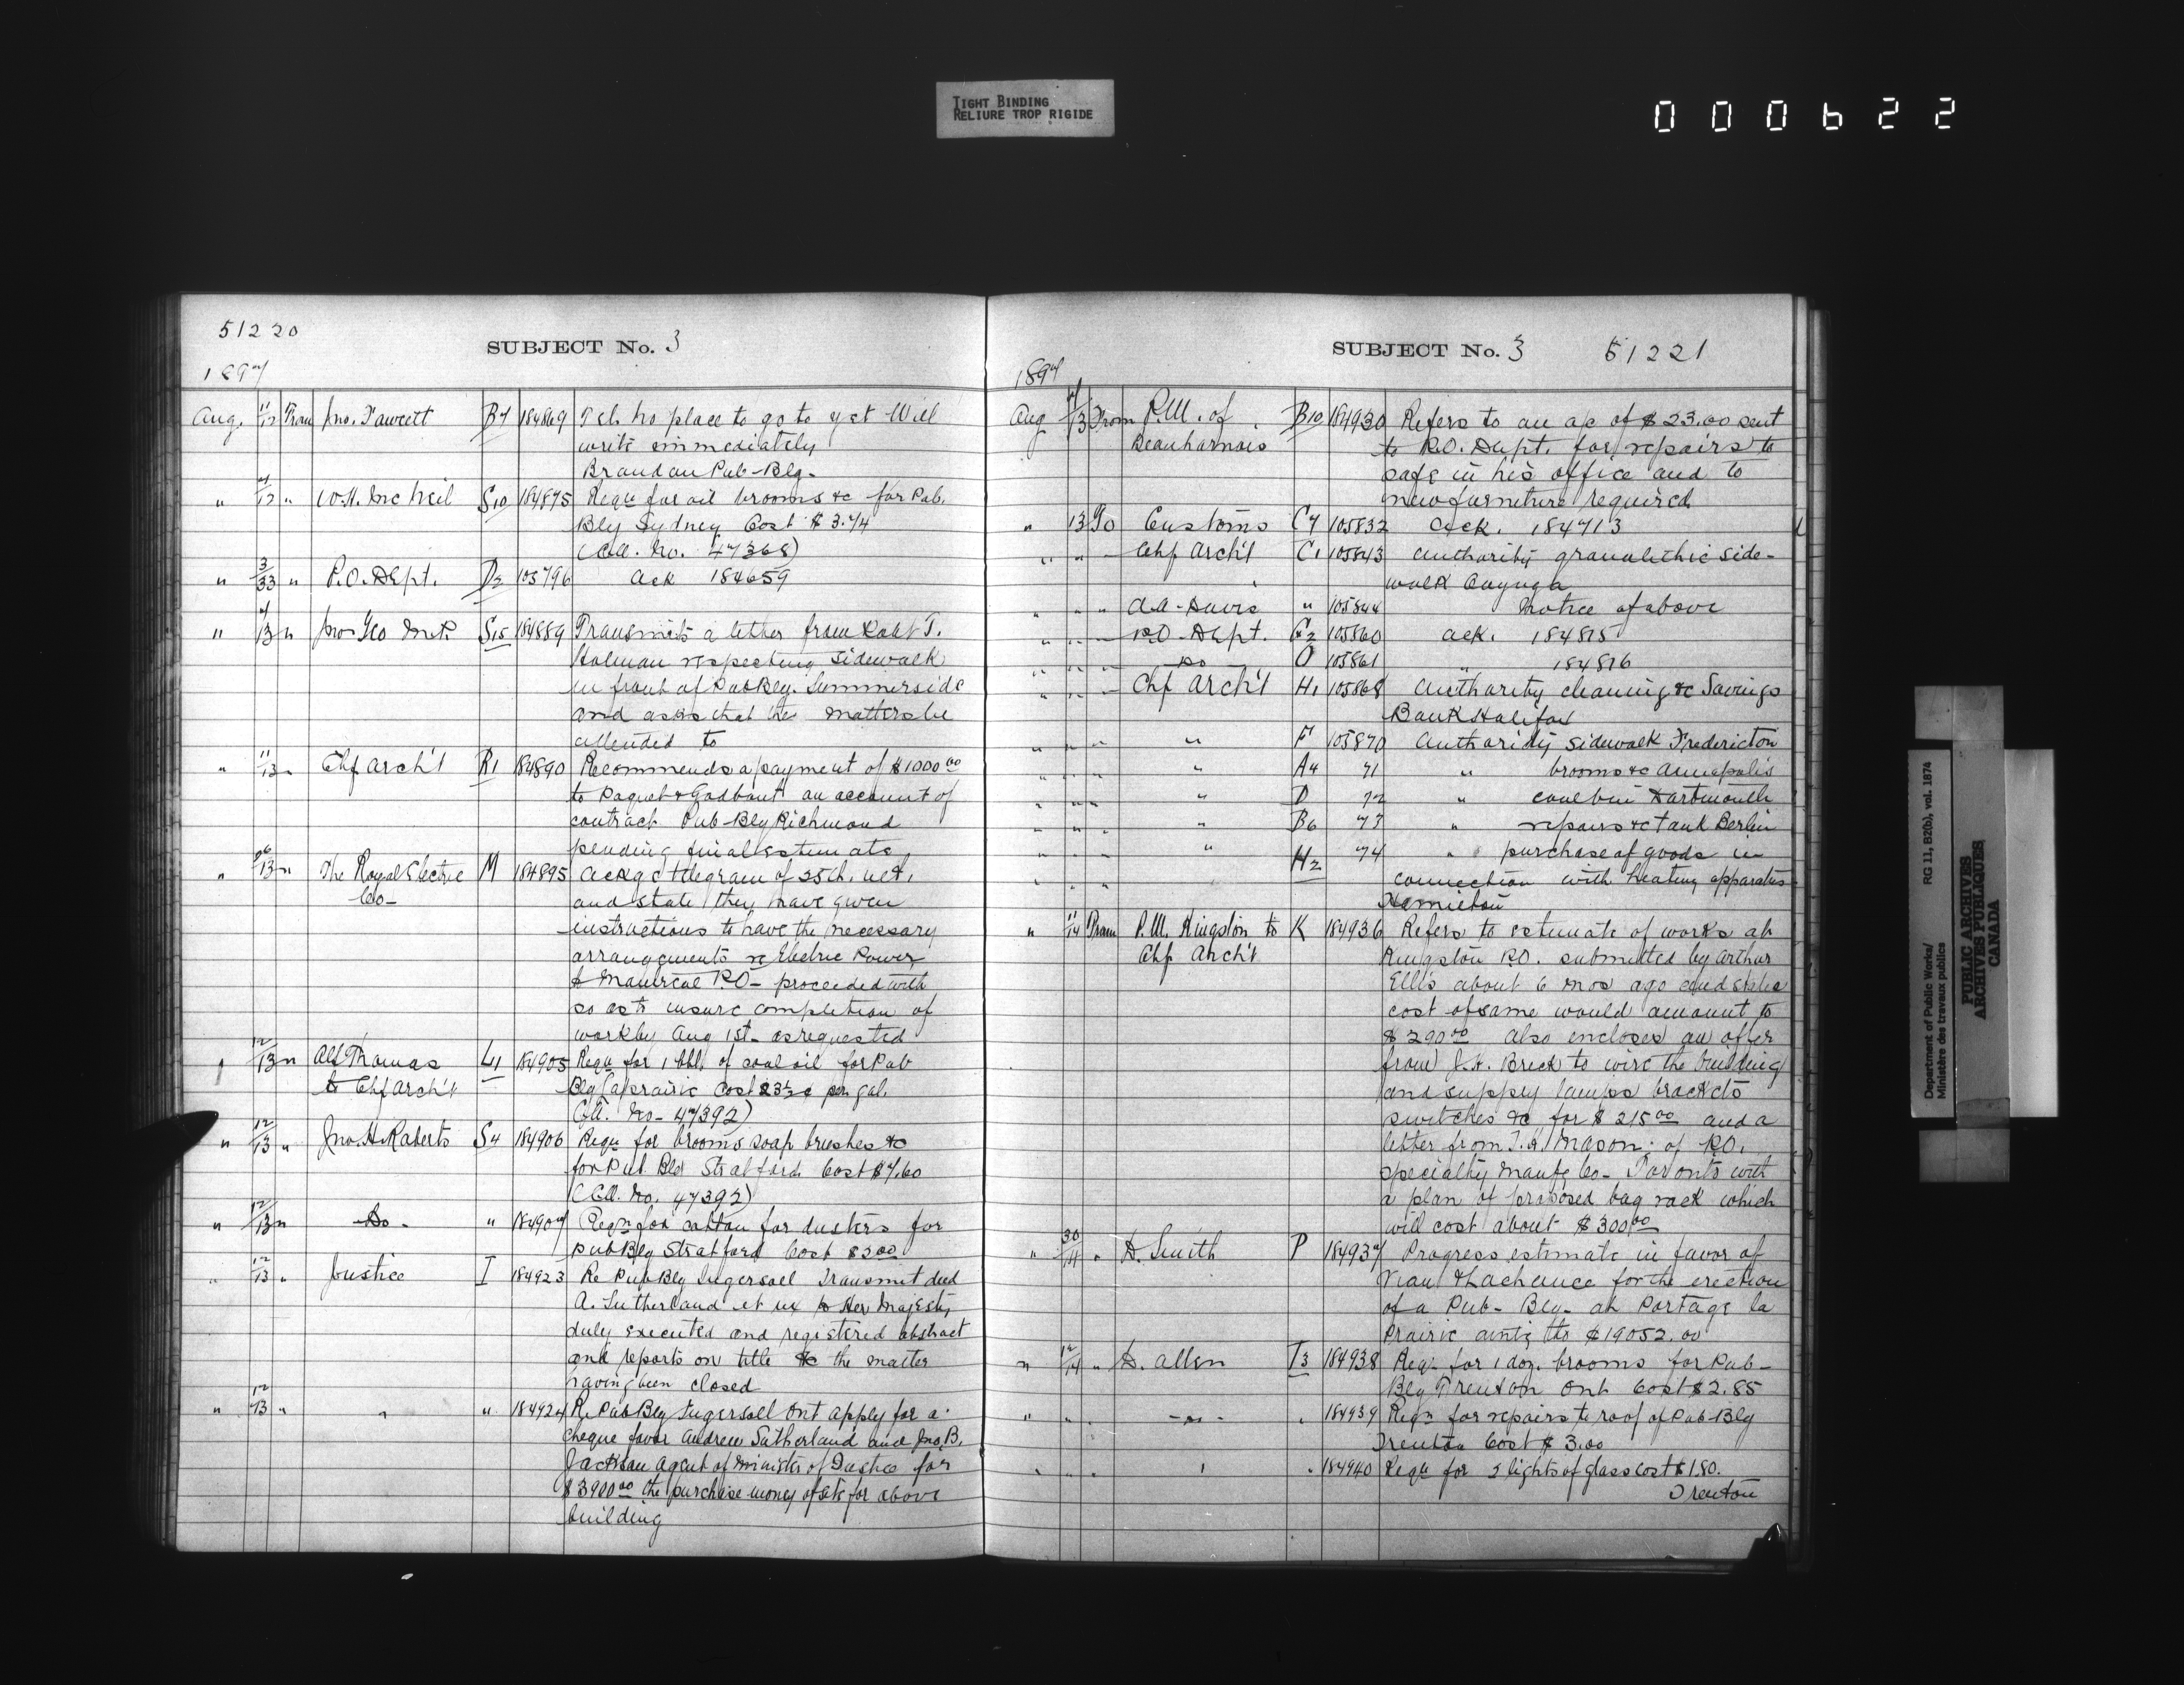 TIGHT BINDING
RELIURE TROP RIGIDE
000622
51220
SUBJECT No. 3
1897
Aug. 11/12 From Jno. Fawcett B7 184869 Tel. no place to go to yet Will
write immediately
Brandon Pub-Blg.
" 7/12 " W.H. McNeil S10 184875 Reqn for oil brooms &c for Pub.
Blg Sydney Cost $3.74
(C.A. No. 47368)
" 3/33 " P.O. Dept. D2 105796 Ack 184659
" 7/13 " Jno Geo S15 184889 Transmits a letter from Robt T.
Holman respecting sidewalk
in front of Pub Blg. Summerside
and asks that the matters be
attended to
" 11/13 " Chf Arch't R1 184890 Recommends a payment of $1000 00
to Paquet & Godbout on account of
contract Pub-Blg Richmond
pending final estimate
" 26/13 " The Royal Electric M 184895 Ackg telegram of 25th. ult.
Co- and state they have given
instructions to have the necessary
arrangements re Electric Power
Montreal P.O- proceeded with
so as to insure completion of
work by Aug 1st- as requested
" 12/13 " Alf Thomas L1 184905 Reqn for 1 bbl. of coal oil for Pub
to Chf Arch't Blg Laprairie Cost 23½c per gal.
C.A. No- 47392)
" 12/13 " Jno. H. Roberts S4 184906 Reqn for brooms soap brushes &c
for Pub. Bld Stratford. Cost $7.60
(C.A. No. 47392)
" 12/13 " -Do- " 184907 Reqn for cotton for dusters for
Pub Blg Stratford Cost $3.00
" 12/13 " Justice I 184923 Re Pub Blg Ingersoll Transmit deed
A. Sutherland et ux to Her Majesty
duly executed and registered abstract
and reports on title &c the matter
having been closed
" 12/13 " " " 184924 Re Pub Blg Ingersoll Ont apply for a
cheque favor Andrew Sutherland and Jno. B.
Jackson agent of Minister of Justice for
$3900 00 the purchase money of site for above
building
SUBJECT No. 3 51221
1897
Aug 7/13 From P.M. of B10 184930 Refers to an ac of $23.00 sent
Beauharnois to P.O. Dept. for repairs to
safe in his office and to
new furniture required
" 13 To Customs C7 105832 Ack. 184713
" " - Chf Arch't C1 105843 Authority granolithic side-
walk Cayuga
" " " A.A. Davis " 105844 Notice of above
" " - P.O. Dept. G2 105860 Ack. 184815
" " - Do O 105861 " 184816
" " - Chf Arch't H1 105868 Authority cleaning &c Savings
Bank Halifax
" " " " F 105870 Authority sidewalk Fredericton
" " " " A4 71 " brooms &c Annapolis
" " " " D 72 " coal bin Dartmouth
" " " " B6 73 " repairs &c tank Berlin
" " " " H2 74 " purchase of goods in
" " " connection with heating apparatus
Hamilton
" 11/14 From P.M. Kingston to K 184936 Refers to estimate of works at
Chf Arch't Kingston P.O. submitted by Arthur
Ellis about 6 mos ago and states
cost of same would amount to
$290 00 also encloses an offer
from J.H. Breck to wire the building
and supply lamps brackets
switches &c for $215 00 and a
letter from Mason. of P.O.
specialty Manufg Co- Toronto with
a plan of proposed bag rack which
will cost about $300 00
" 30/14 " D. Smith P 184937 Progress estimate in favor of
Viau & Lachance for the erection
of a Pub- Blg- at Portage la
Prairie amtg to $19052.00
" 12/14 " D. Allen T3 184938 Reqn for 1 doz. brooms for Pub-
Blg Trenton Ont Cost $2.85
" " . -Do- . 184939 Reqn for repairs to roof of Pub-Blg
Trenton Cost $3.00
" " . " . 184940 Reqn for 2 lights of glass cost $1.80.
Trenton
Department of Public Works/ RG 11, B2(b), vol. 1874
Ministère des travaux publics
PUBLIC ARCHIVES
ARCHIVES PUBLIQUES
CANADA